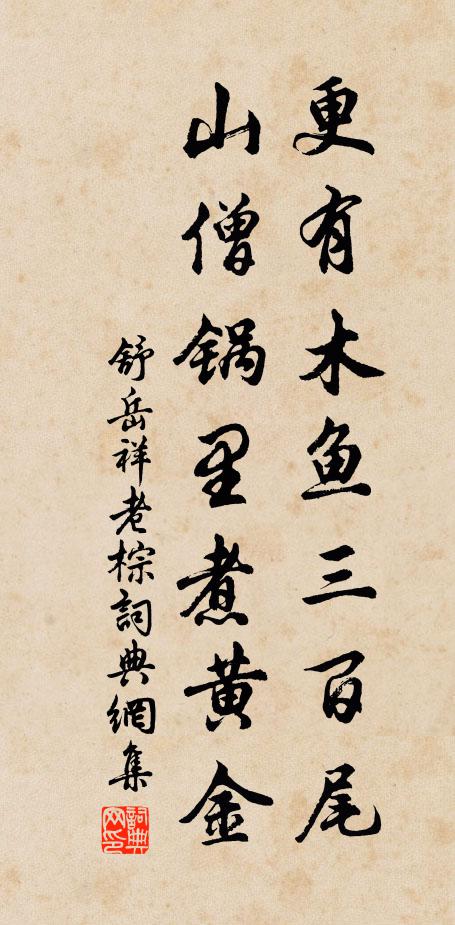 更有木鱼三百尾
山僧锅里煮黄金
舒岳祥老棕詞典網集
詞典网印